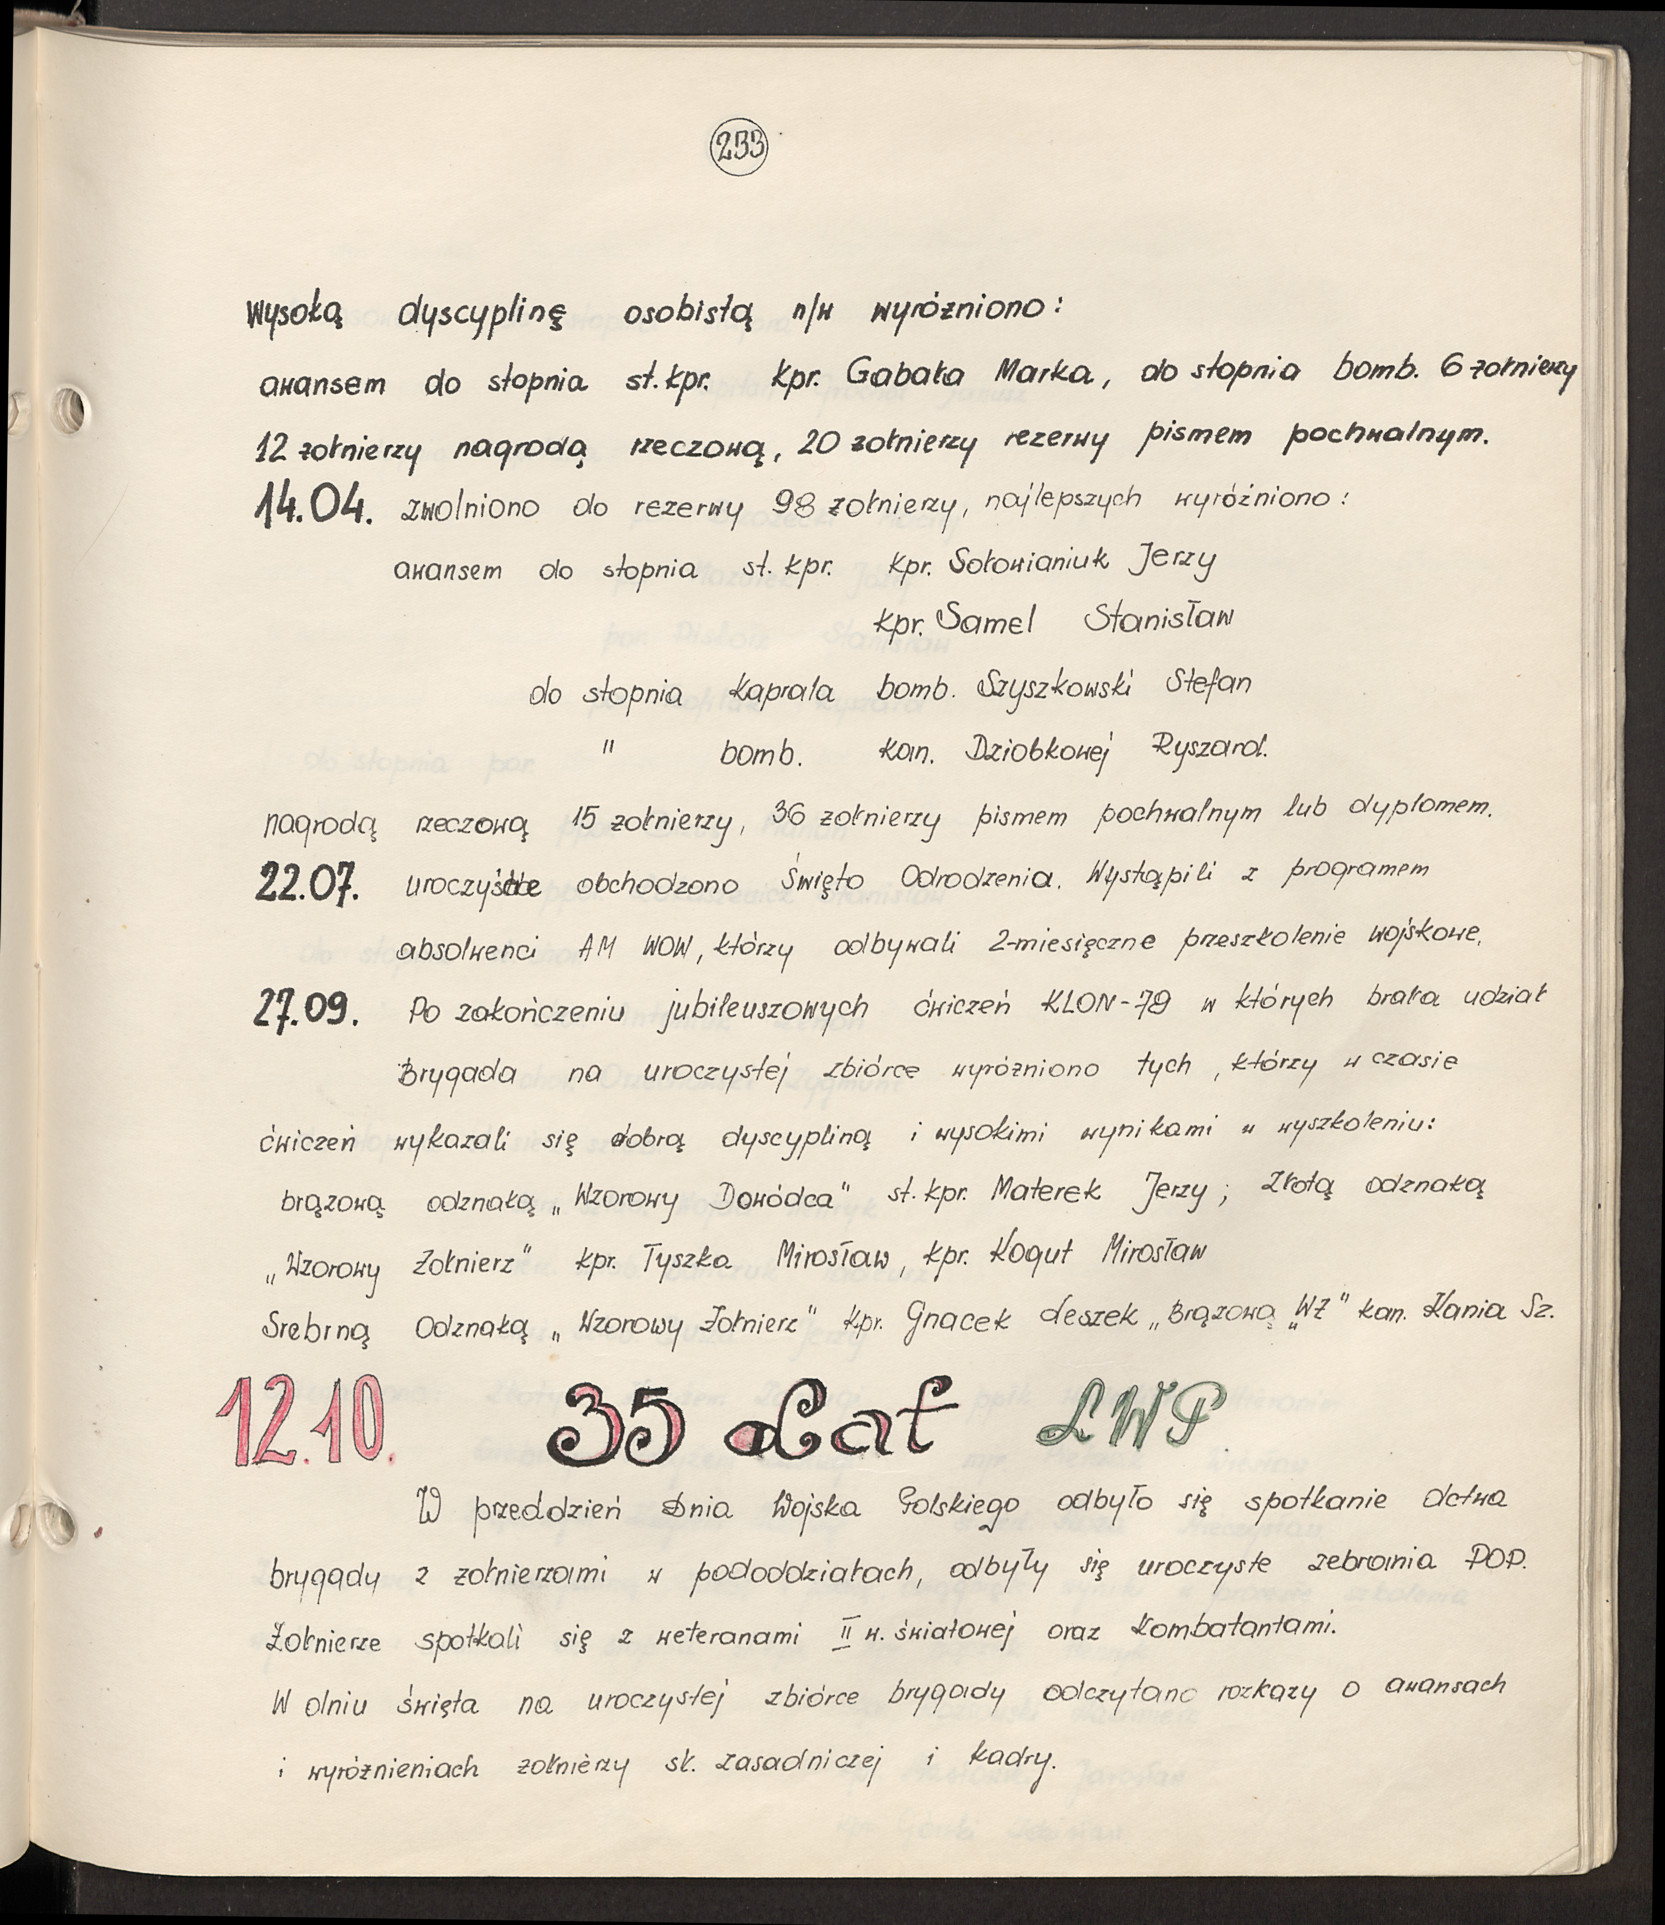 233
Wysoką dyscyplinę osobistą n/w wyróżniono:
awansem do stopnia st. kpr. kpr. Gabała Marka, do stopnia bomb. 6 żołnierzy
12 żołnierzy nagrodą rzeczową, 20 żołnierzy rezerwy pismem pochwalnym.
14.04. zwolniono do rezerwy 98 żołnierzy, najlepszych wyróżniono:
awansem do stopnia st. kpr. kpr. Sołowianiuk Jerzy
kpr. Samel Stanisław
do stopnia kaprala bomb. Szyszkowski Stefan
" bomb. kan. Dziobkowej Ryszard.
nagrodą rzeczową 15 żołnierzy, 36 żołnierzy pismem pochwalnym lub dyplomem.
22.07. uroczyście obchodzono Święto Odrodzenia. Wystąpili z programem
absolwenci AM WOW, którzy odbywali 2-miesięczne przeszkolenie wojskowe.
27.09. Po zakończeniu jubileuszowych ćwiczeń KLON-78 w których brała udział
Brygada na uroczystej zbiórce wyróżniono tych, którzy w czasie
ćwiczeń wykazali się dobrą dyscypliną i wysokimi wynikami w wyszkoleniu:
brązową odznaką „Wzorowy Dowódca" st. kpr. Materek Jerzy; Złotą odznaką
„Wzorowy Żołnierz" kpr. Tyszka Mirosław, kpr. Kogut Mirosław
Srebrną Odznaką „Wzorowy Żołnierz" kpr. Gnacek Leszek „Brązową „WŻ" kan. Kania Sz.
12.10. 35 Lat LWP.
W przeddzień Dnia Wojska Polskiego odbyło się spotkanie dctwa
brygady z żołnierzami w pododdziałach, odbyły się uroczyste zebrania POP.
Żołnierze spotkali się z weteranami II w. światowej oraz kombatantami.
W dniu święta na uroczystej zbiórce brygady odczytano rozkazy o awansach
i wyróżnieniach żołnierzy sł. zasadniczej i kadry.